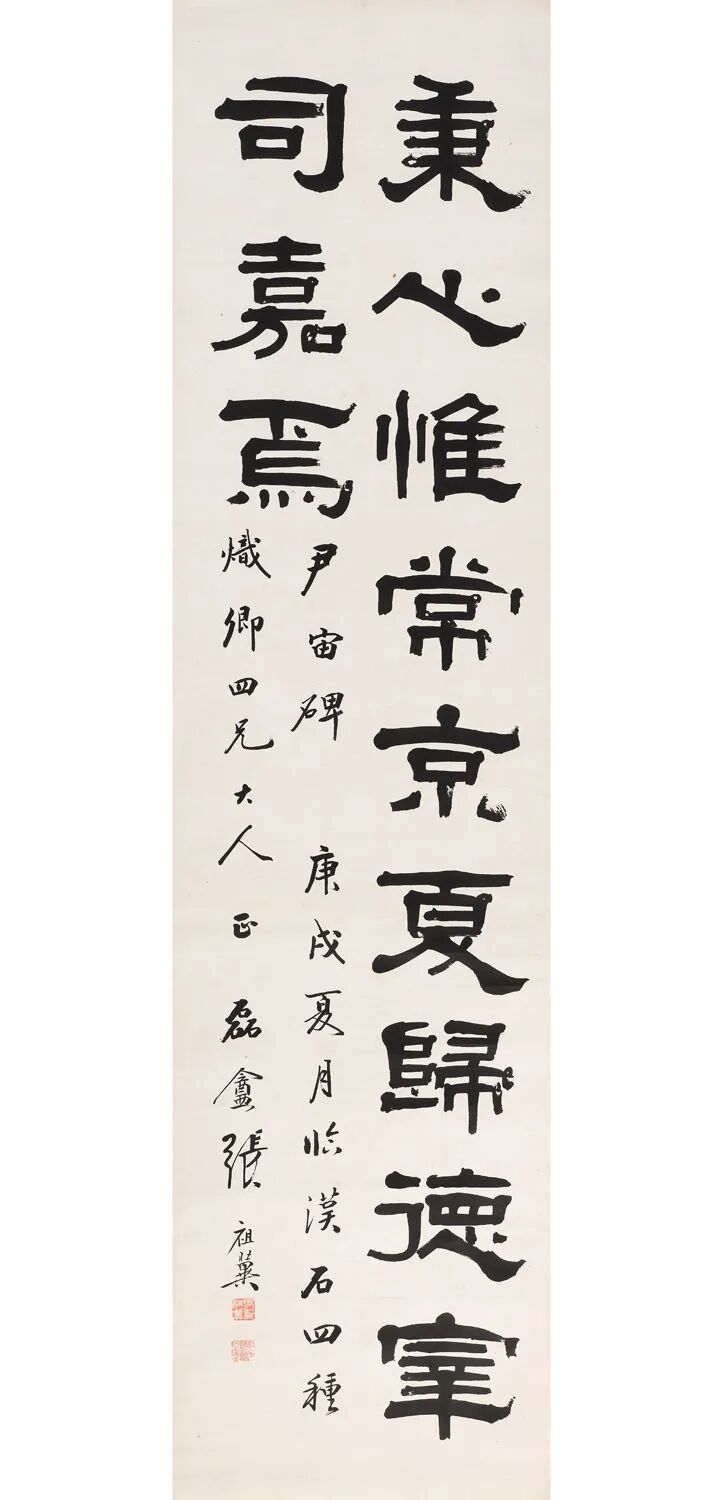 秉心惟常京夏歸德宰
司嘉焉
尹宙碑 庚戌夏月臨漢石四種
熾卿四兄大人正 磊盦張祖翼